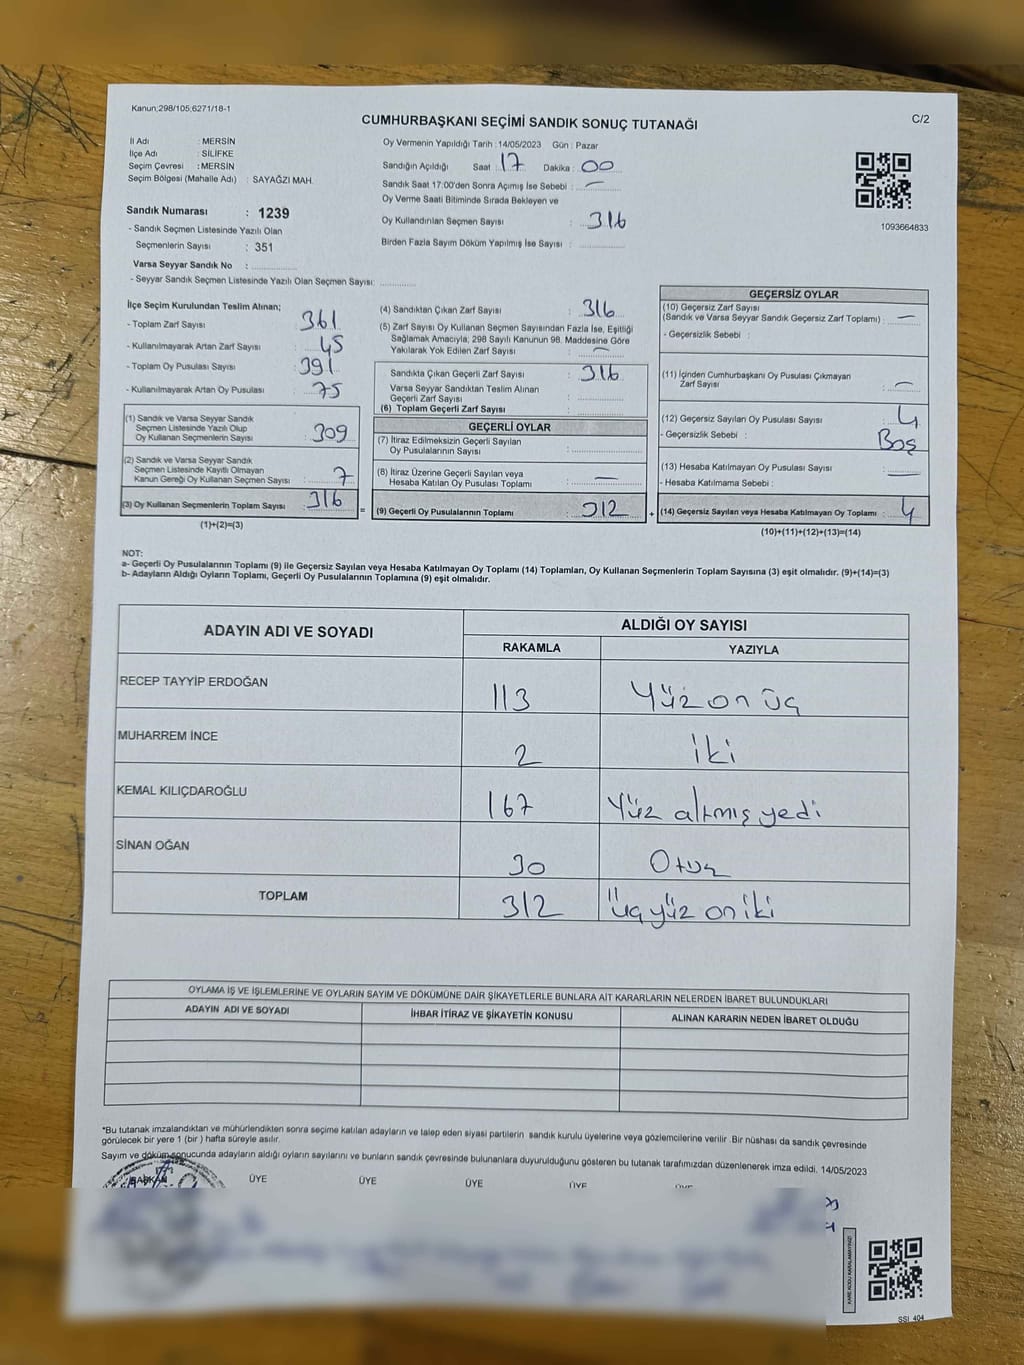 Kanun;298/105,6271/18-1
CUMHURBAŞKANI SEÇİMİ SANDIK SONUÇ TUTANAĞI
C/2
İl Adı : MERSİN
İlçe Adı : SİLİFKE
Seçim Çevresi : MERSİN
Seçim Bölgesi (Mahalle Adı) : SAYAĞZI MAH.
Sandık Numarası : 1239
- Sandık Seçmen Listesinde Yazılı Olan
Seçmenlerin Sayısı : 351
Varsa Seyyar Sandık No :
- Seyyar Sandık Seçmen Listesinde Yazılı Olan Seçmen Sayısı:
Oy Vermenin Yapıldığı Tarih : 14/05/2023 Gün : Pazar
Sandığın Açıldığı Saat : 17 Dakika : 00
Sandık Saat 17:00'den Sonra Açımış İse Sebebi : —
Oy Verme Saati Bitiminde Sırada Bekleyen ve
Oy Kullandırılan Seçmen Sayısı : 316
Birden Fazla Sayım Döküm Yapılmış İse Sayısı :
1093664833
İlçe Seçim Kurulundan Teslim Alınan;
- Toplam Zarf Sayısı : 361
- Kullanılmayarak Artan Zarf Sayısı : 45
- Toplam Oy Pusulası Sayısı : 391
- Kullanılmayarak Artan Oy Pusulası : 75
(1) Sandık ve Varsa Seyyar Sandık
Seçmen Listesinde Yazılı Olup
Oy Kullanan Seçmenlerin Sayısı : 309
(2) Sandık ve Varsa Seyyar Sandık
Seçmen Listesinde Kayıtlı Olmayan
Kanun Gereği Oy Kullanan Seçmen Sayısı : 7
(3) Oy Kullanan Seçmenlerin Toplam Sayısı : 316
(1)+(2)=(3)
(4) Sandıktan Çıkan Zarf Sayısı : 316
(5) Zarf Sayısı Oy Kullanan Seçmen Sayısından Fazla İse, Eşitliği
Sağlamak Amacıyla; 298 Sayılı Kanunun 98. Maddesine Göre
Yakılarak Yok Edilen Zarf Sayısı : —
Sandıkta Çıkan Geçerli Zarf Sayısı : 316
Varsa Seyyar Sandıktan Teslim Alınan
Geçerli Zarf Sayısı :
(6) Toplam Geçerli Zarf Sayısı :
GEÇERLİ OYLAR
(7) İtiraz Edilmeksizin Geçerli Sayılan
Oy Pusulalarının Sayısı :
(8) İtiraz Üzerine Geçerli Sayılan veya
Hesaba Katılan Oy Pusulası Toplamı : —
= (9) Geçerli Oy Pusulalarının Toplamı : 312
GEÇERSİZ OYLAR
(10) Geçersiz Zarf Sayısı
(Sandık ve Varsa Seyyar Sandık Geçersiz Zarf Toplamı) : —
- Geçersizlik Sebebi :
(11) İçinden Cumhurbaşkanı Oy Pusulası Çıkmayan
Zarf Sayısı : —
(12) Geçersiz Sayılan Oy Pusulası Sayısı : 4
- Geçersizlik Sebebi : Boş
(13) Hesaba Katılmayan Oy Pusulası Sayısı : —
- Hesaba Katılmama Sebebi :
+ (14) Geçersiz Sayılan veya Hesaba Katılmayan Oy Toplamı : 4
(10)+(11)+(12)+(13)=(14)
NOT:
a- Geçerli Oy Pusulalarının Toplamı (9) ile Geçersiz Sayılan veya Hesaba Katılmayan Oy Toplamı (14) Toplamları, Oy Kullanan Seçmenlerin Toplam Sayısına (3) eşit olmalıdır. (9)+(14)=(3)
b- Adayların Aldığı Oyların Toplamı, Geçerli Oy Pusulalarının Toplamına (9) eşit olmalıdır.
ADAYIN ADI VE SOYADI ALDIĞI OY SAYISI
RAKAMLA YAZIYLA
RECEP TAYYİP ERDOĞAN 113 Yüz on üç
MUHARREM İNCE 2 İki
KEMAL KILIÇDAROĞLU 167 Yüz altmış yedi
SİNAN OĞAN 30 Otuz
TOPLAM 312 Üçyüz oniki
OYLAMA İŞ VE İŞLEMLERİNE VE OYLARIN SAYIM VE DÖKÜMÜNE DAİR ŞİKAYETLERLE BUNLARA AİT KARARLARIN NELERDEN İBARET BULUNDUKLARI
ADAYIN ADI VE SOYADI İHBAR İTİRAZ VE ŞİKAYETİN KONUSU ALINAN KARARIN NEDEN İBARET OLDUĞU
*Bu tutanak imzalandıktan ve mühürlendikten sonra seçime katılan adayların ve talep eden siyasi partilerin sandık kurulu üyelerine veya gözlemcilerine verilir .Bir nüshası da sandık çevresinde
görülecek bir yere 1 (bir ) hafta süreyle asılır.
Sayım ve döküm sonucunda adayların aldığı oyların sayılarını ve bunların sandık çevresinde bulunanlara duyurulduğunu gösteren bu tutanak tarafımızdan düzenlenerek imza edildi. 14/05/2023
BAŞKAN ÜYE ÜYE ÜYE ÜYE ÜYE
KARE KODU KARALAMAYINIZ!
SSI_404